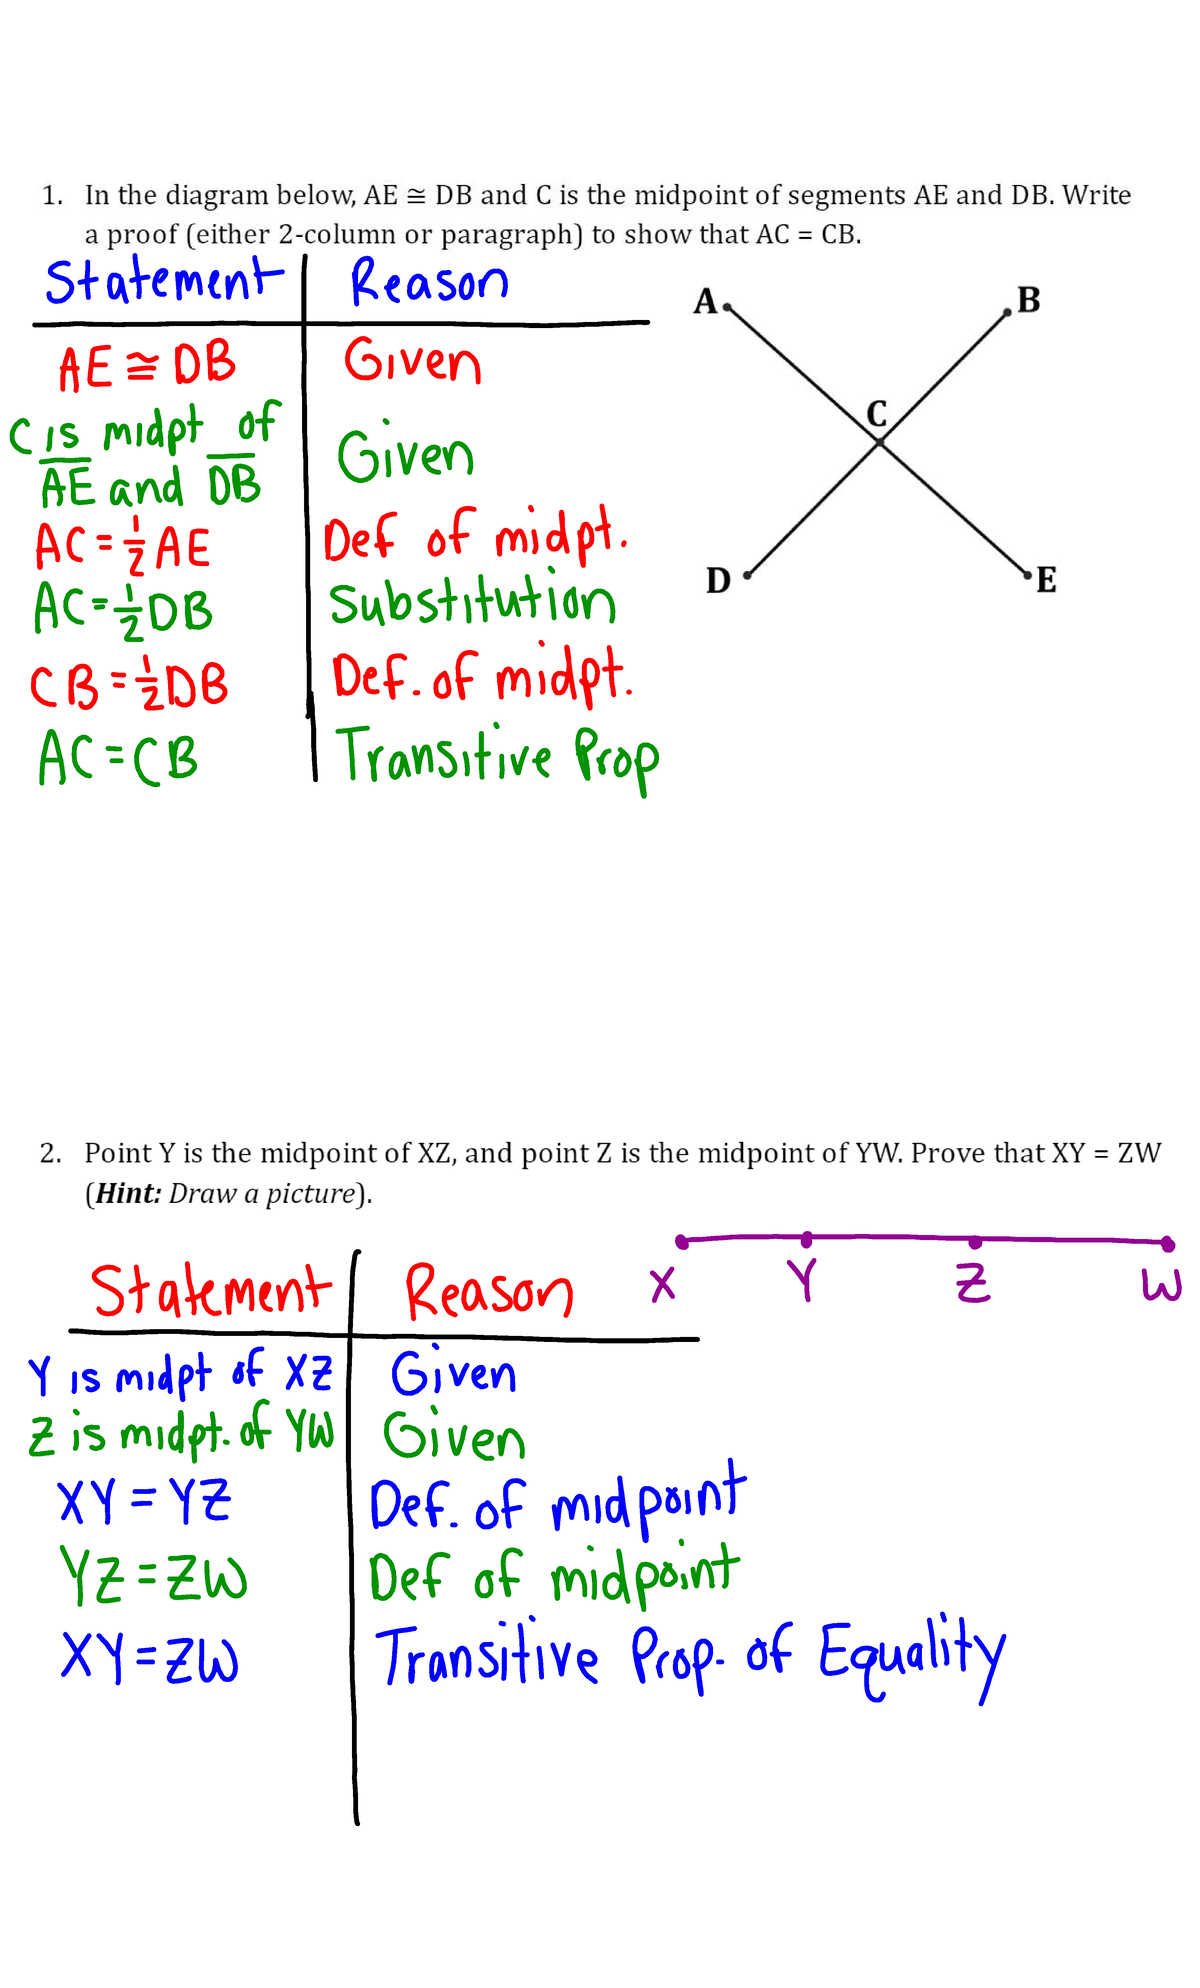 1. In the diagram below, AE ≅ DB and C is the midpoint of segments AE and DB. Write
a proof (either 2-column or paragraph) to show that AC = CB.
Statement Reason
A B
AE ≅ DB Given
C is midpt of
AE and DB Given
C
AC = 1/2 AE Def of midpt.
AC = 1/2 DB Substitution
D E
CB = 1/2 DB Def. of midpt.
AC = CB Transitive Prop
2. Point Y is the midpoint of XZ, and point Z is the midpoint of YW. Prove that XY = ZW
(Hint: Draw a picture).
X Y Z W
Statement Reason
Y is midpt of XZ Given
Z is midpt. of YW Given
XY = YZ Def. of midpoint
YZ = ZW Def of midpoint
XY = ZW Transitive Prop. of Equality